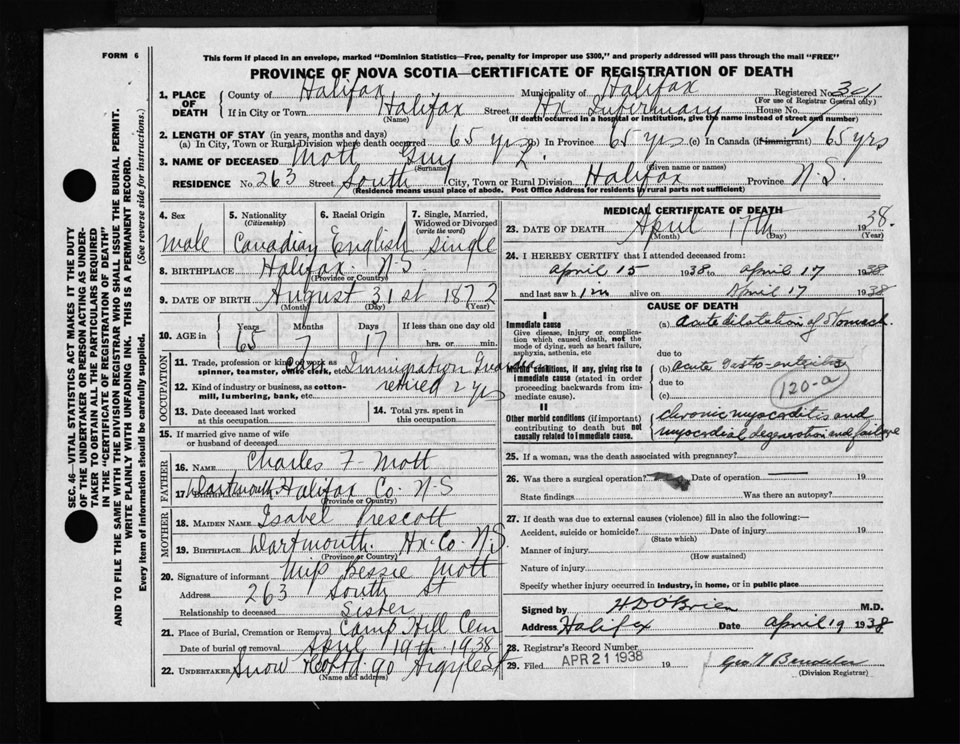 FORM 6
This form if placed in an envelope, marked "Dominion Statistics—Free, penalty for improper use $300," and properly addressed will pass through the mail "FREE"
PROVINCE OF NOVA SCOTIA—CERTIFICATE OF REGISTRATION OF DEATH
1. PLACE OF DEATH County of Halifax Municipality of Halifax Registered No. 301
(For use of Registrar General only)
If in City or Town Halifax Street Hx Infirmary House No.
(Name) (If death occurred in a hospital or institution, give the name instead of street and number)
2. LENGTH OF STAY (in years, months and days)
(a) In City, Town or Rural Division where death occurred 65 yrs (b) In Province 65 yrs (c) In Canada (if immigrant) 65 yrs
3. NAME OF DECEASED Mott Guy L.
(Surname) (Given name or names)
RESIDENCE No. 263 Street South City, Town or Rural Division Halifax Province N.S.
(Residence means usual place of abode. Post Office Address for residents in rural parts not sufficient)
4. Sex 5. Nationality (Citizenship) 6. Racial Origin 7. Single, Married, Widowed or Divorced (write the word)
Male Canadian English Single
8. BIRTHPLACE Halifax N.S.
(Province or Country)
9. DATE OF BIRTH August 31st 1872
(Month) (Day) (Year)
10. AGE in Years Months Days If less than one day
65 7 17 hrs. or min.
OCCUPATION
11. Trade, profession or kind of work as spinner, teamster, office clerk, etc. Immigration Guard
12. Kind of industry or business, as cotton-mill, lumbering, bank, etc. retired 2 yrs
13. Date deceased last worked at this occupation
14. Total yrs. spent in this occupation
15. If married give name of wife or husband of deceased
FATHER
16. NAME Charles F Mott
17. Dartmouth Halifax Co. N.S
(Province or Country)
MOTHER
18. MAIDEN NAME Isabel Prescott
19. BIRTHPLACE Dartmouth. Hx. Co. N.S.
(Province or Country)
20. Signature of informant Miss Bessie Mott
Address 263 South St
Relationship to deceased Sister
21. Place of Burial, Cremation or Removal Camp Hill Cem
Date of burial or removal April 19th 1938
22. UNDERTAKER Snow & Co Ltd 90 Argyle St
(Name and address)
MEDICAL CERTIFICATE OF DEATH
23. DATE OF DEATH April 17th 1938.
(Month) (Day) (Year)
24. I HEREBY CERTIFY that I attended deceased from:
April 15 1938 to April 17 1938
and last saw him alive on April 17 1938
CAUSE OF DEATH
I
Immediate cause
Give disease, injury or complication which caused death, not the mode of dying, such as heart failure, asphyxia, asthenia, etc
(a) Acute dilatation of Stomach
due to
Morbid conditions, if any, giving rise to immediate cause (stated in order proceeding backwards from immediate cause).
(b) acute Gastro-enteritis
due to
(c)
120-a
II
Other morbid conditions (if important) contributing to death but not causally related to immediate cause.
Chronic myocarditis and
myocardial degeneration and failure
25. If a woman, was the death associated with pregnancy?
26. Was there a surgical operation? Date of operation 19
State findings Was there an autopsy?
27. If death was due to external causes (violence) fill in also the following:—
Accident, suicide or homicide? Date of injury 19
(State which)
Manner of injury
(How sustained)
Nature of injury
Specify whether injury occurred in industry, in home, or in public place
Signed by H D O'Brien M.D.
Address Halifax Date April 19 1938
28. Registrar's Record Number
29. Filed APR 21 1938 19
(Division Registrar)
SEC. 46—VITAL STATISTICS ACT MAKES IT THE DUTY
OF THE UNDERTAKER OR PERSON ACTING AS UNDER-
TAKER TO OBTAIN ALL THE PARTICULARS REQUIRED
IN THE "CERTIFICATE OF REGISTRATION OF DEATH"
AND TO FILE THE SAME WITH THE DIVISION REGISTRAR WHO SHALL ISSUE THE BURIAL PERMIT.
WRITE PLAINLY WITH UNFADING INK. THIS IS A PERMANENT RECORD.
Every item of information should be carefully supplied. (See reverse side for instructions.)